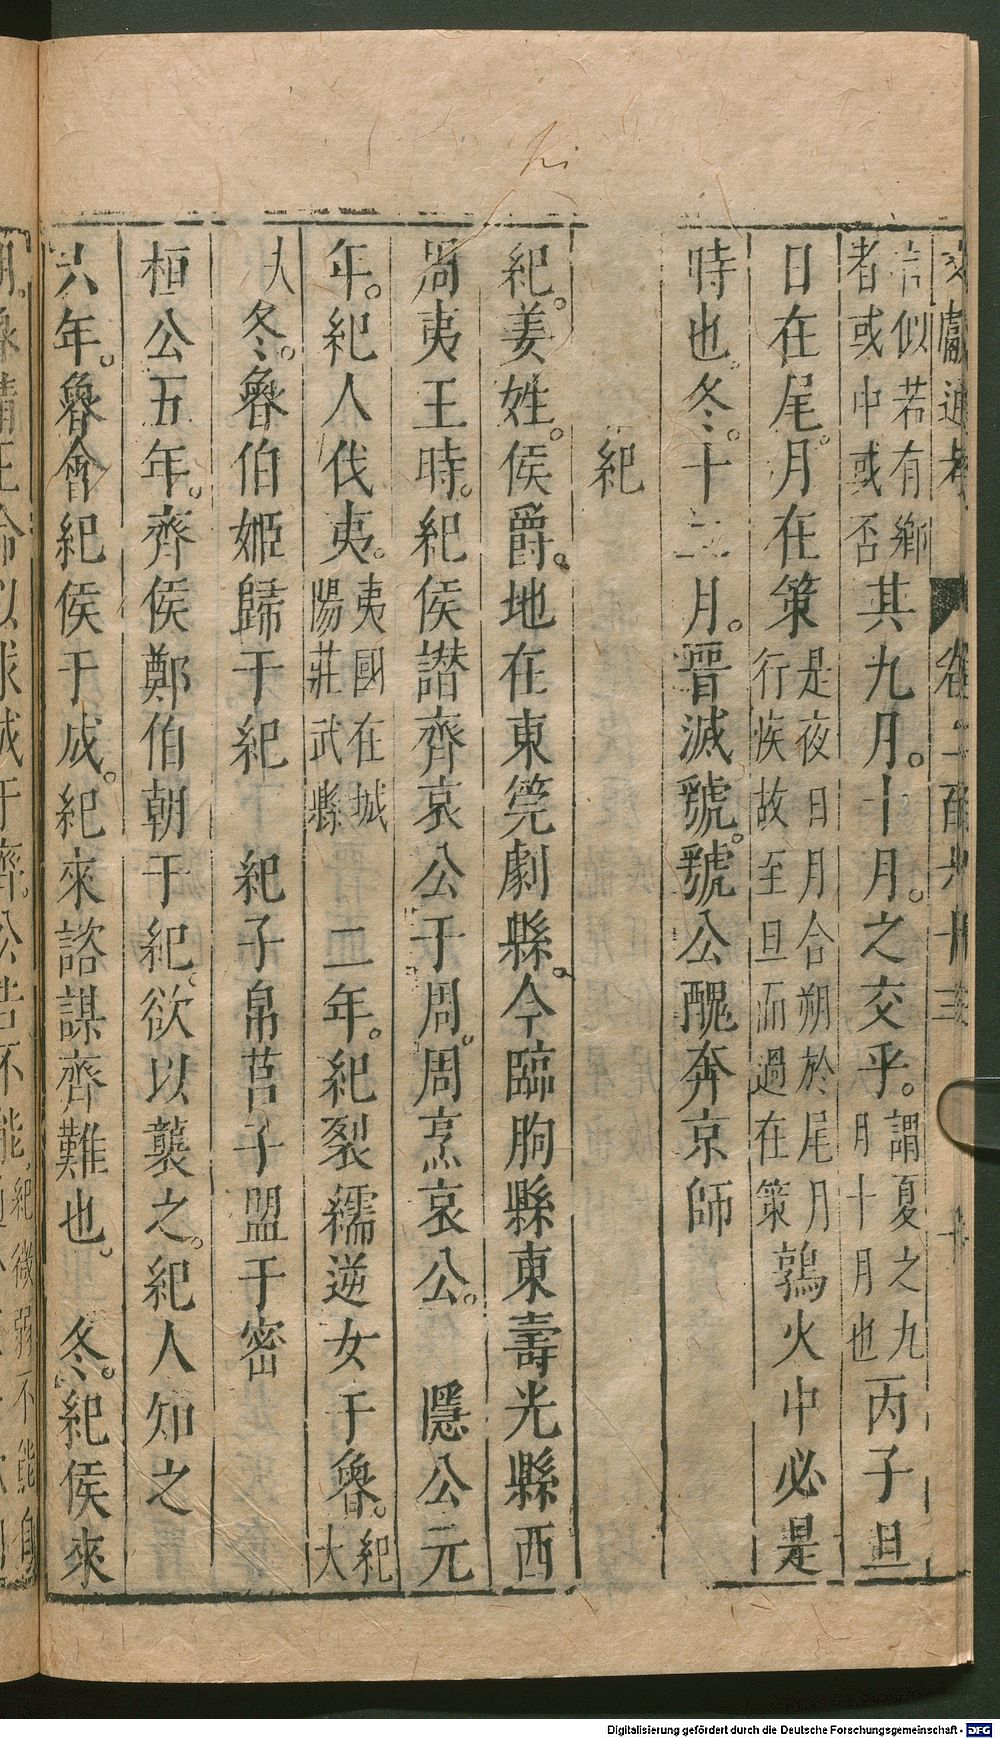 文獻通考 卷二百六十三 十
言似若有鄉者或中或否其九月。十月。之交乎。謂夏之九月十月也丙子旦
日在尾。月在策是夜日月合朔於尾月行疾故至旦而過在策鶉火中必是
時也。冬。十二月。晉滅虢。虢公醜奔京師
紀
紀。姜姓。侯爵。地在東筦劇縣。今臨朐縣東壽光縣西
周夷王時。紀侯譖齊哀公于周。周烹哀公。 隱公元
年。紀人伐夷。夷國在城陽莊武縣 二年。紀裂繻逆女于魯。紀大
夫冬。魯伯姬歸于紀 紀子帛莒子盟于密
桓公五年。齊侯鄭伯朝于紀。欲以襲之。紀人知之
六年。魯會紀侯于成。紀來諮謀齊難也。 冬。紀侯來
Digitalisierung gefördert durch die Deutsche Forschungsgemeinschaft - DFG